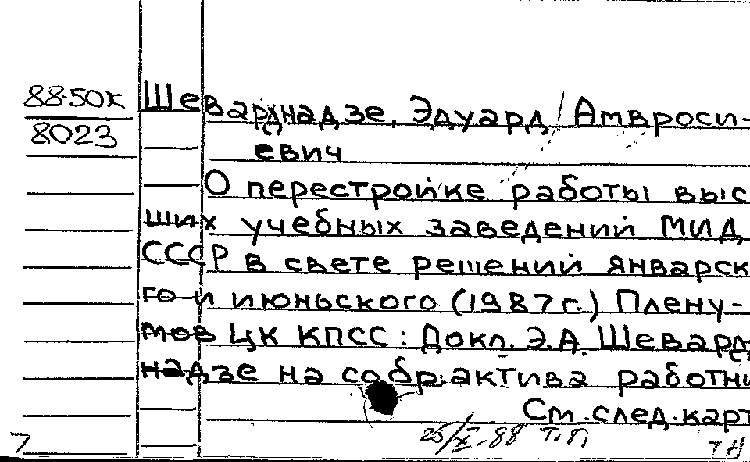 88-50к Шеварднадзе, Эдуард Амвроси-
8023 евич
О перестройке работы выс
ших учебных заведений МИД
СССР в свете решений январск
го и июньского (1987 г.) Плену-
мов ЦК КПСС: Докл. Э.А. Шевард
надзе на собр. актива работни
См. след. карт
7 25/X-88 Т.П.